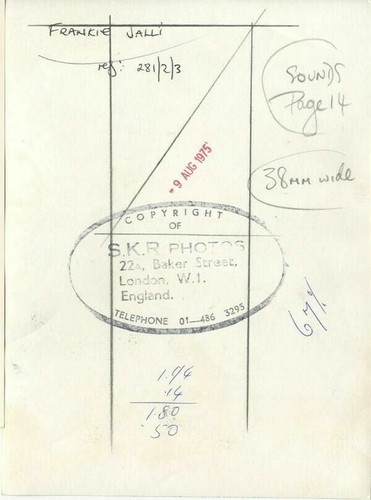 FRANKIE VALLI
ref: 281/2/3
SOUNDS
Page 14
- 9 AUG 1975
38MM wide
COPYRIGHT
OF
S.K.R PHOTOS
22A, Baker Street,
London, W.1.
England.
TELEPHONE 01-486 3295
67%
.14
1.80
50